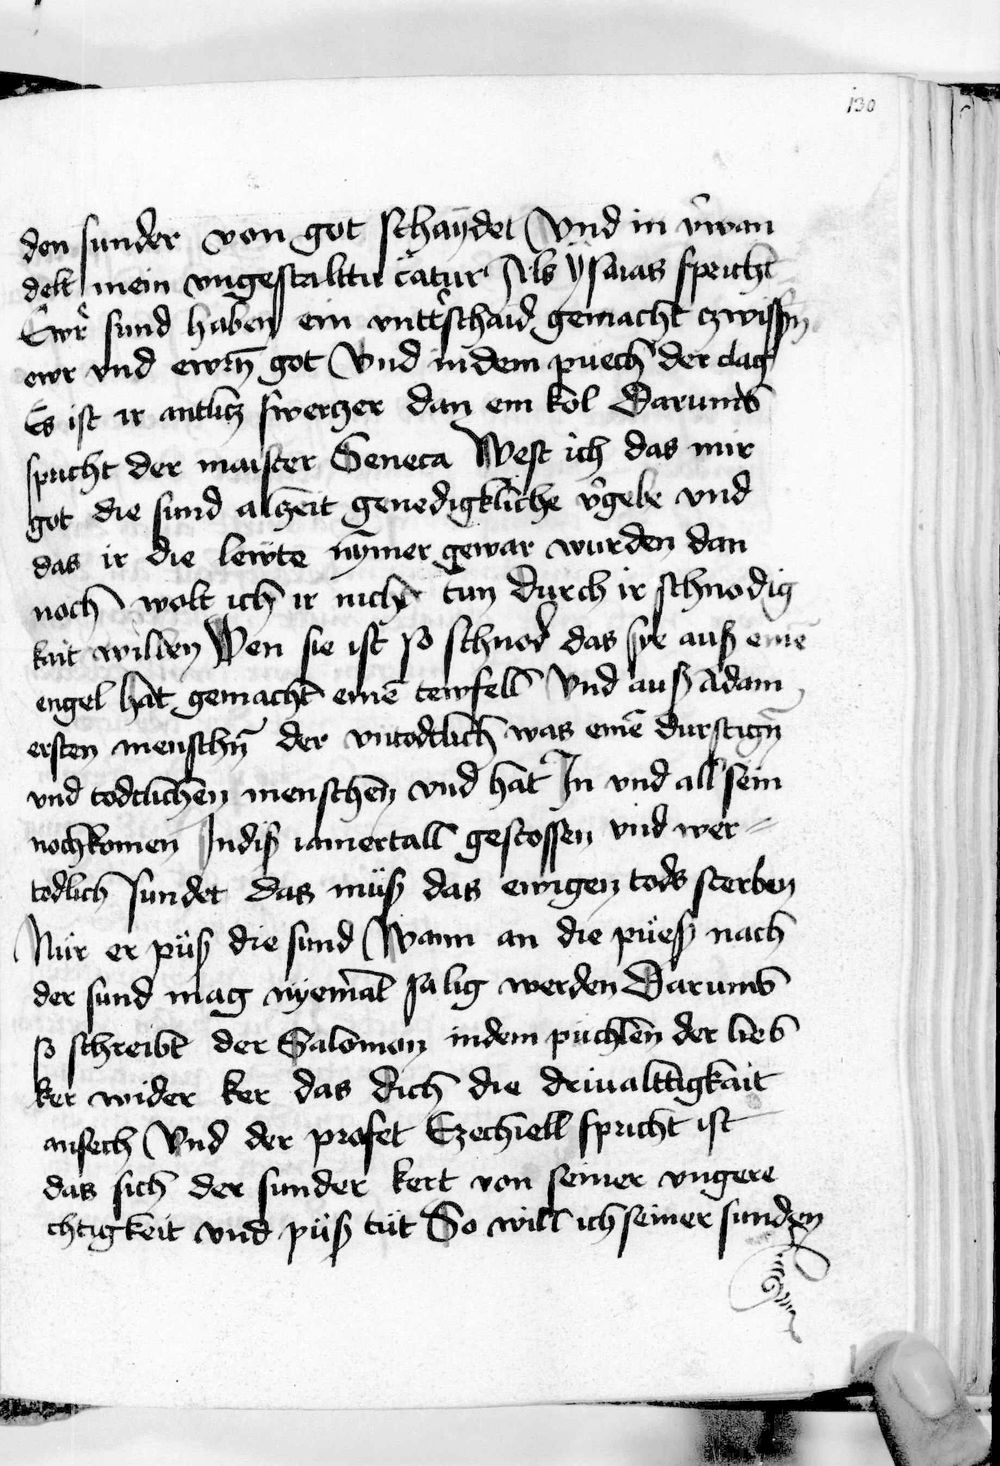 130
den sunder von got schaydet Vnd in v̂wan
delt mein vngestalttu c̈atur Als ysaias spricht
Ewr̂ sund haben ein vntt̂schaid gemacht czwissn̄
ewr vnd ewrn̄ got Vnd in dem puech der clag
Es ist ir antlicz swerczer dan ein kol Darumb
spricht der maister Seneca West ich das mir
got die sund alczeit genedigkliche v̂gebe vnd
das ir die lewte nȳmer gewar wurden dan
noch wolt ich ir nicht tun durch ir schnodig
kait willen Wen sie ist so schnod das sye auß eine̅
engel hat gemacht eine̅ tewfell Vnd auß Adam
ersten menschn̄ der vntodtlich was eine̅ durstign̄
vnd todtlichen menschen vnd hat In vnd all sein
nochkomen Indiß iamertall gestossen vnd wer
todlich sundet das müß das ewigen tods sterben
Nür er püß die sund Wann an die püeß nach
der sund mag nyemāt salig werden Darumb
so schreibt der Salomon in dem püchlen der lieb
ker wider ker das dich die driualttigkait
ansech Vnd der profet Ezechiell spricht ist
das sich der sunder kert von seiner vngere
chtigkeit vnd püß tüt So will ich seiner sunden